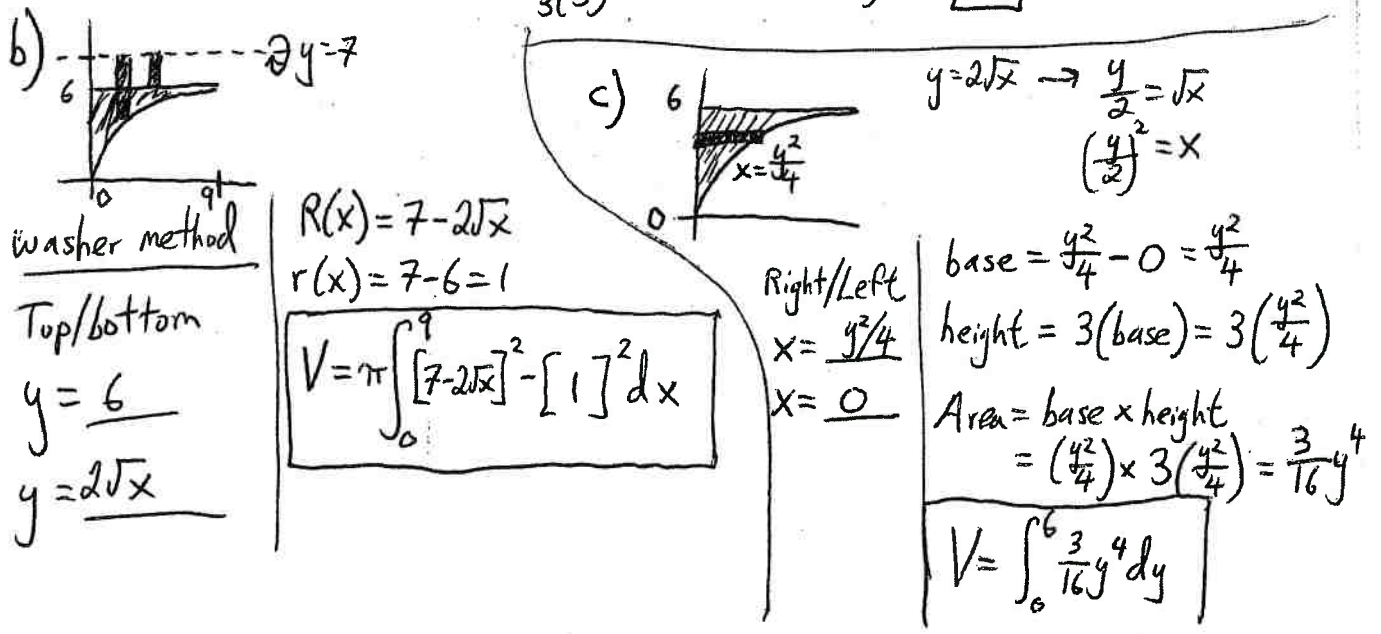 3(3)
b)
y=7
6
0
9
washer method
Top/bottom
y = 6
y = 2√x
R(x) = 7-2√x
r(x) = 7-6 = 1
V = π∫₀⁹ [7-2√x]² - [1]² dx
c)
6
x = y²/4
0
y = 2√x → y/2 = √x
(y/2)² = x
Right/Left
x = y²/4
x = 0
base = y²/4 - 0 = y²/4
height = 3(base) = 3(y²/4)
Area = base x height
= (y²/4) x 3(y²/4) = 3/16 y⁴
V = ∫₀⁶ 3/16 y⁴ dy